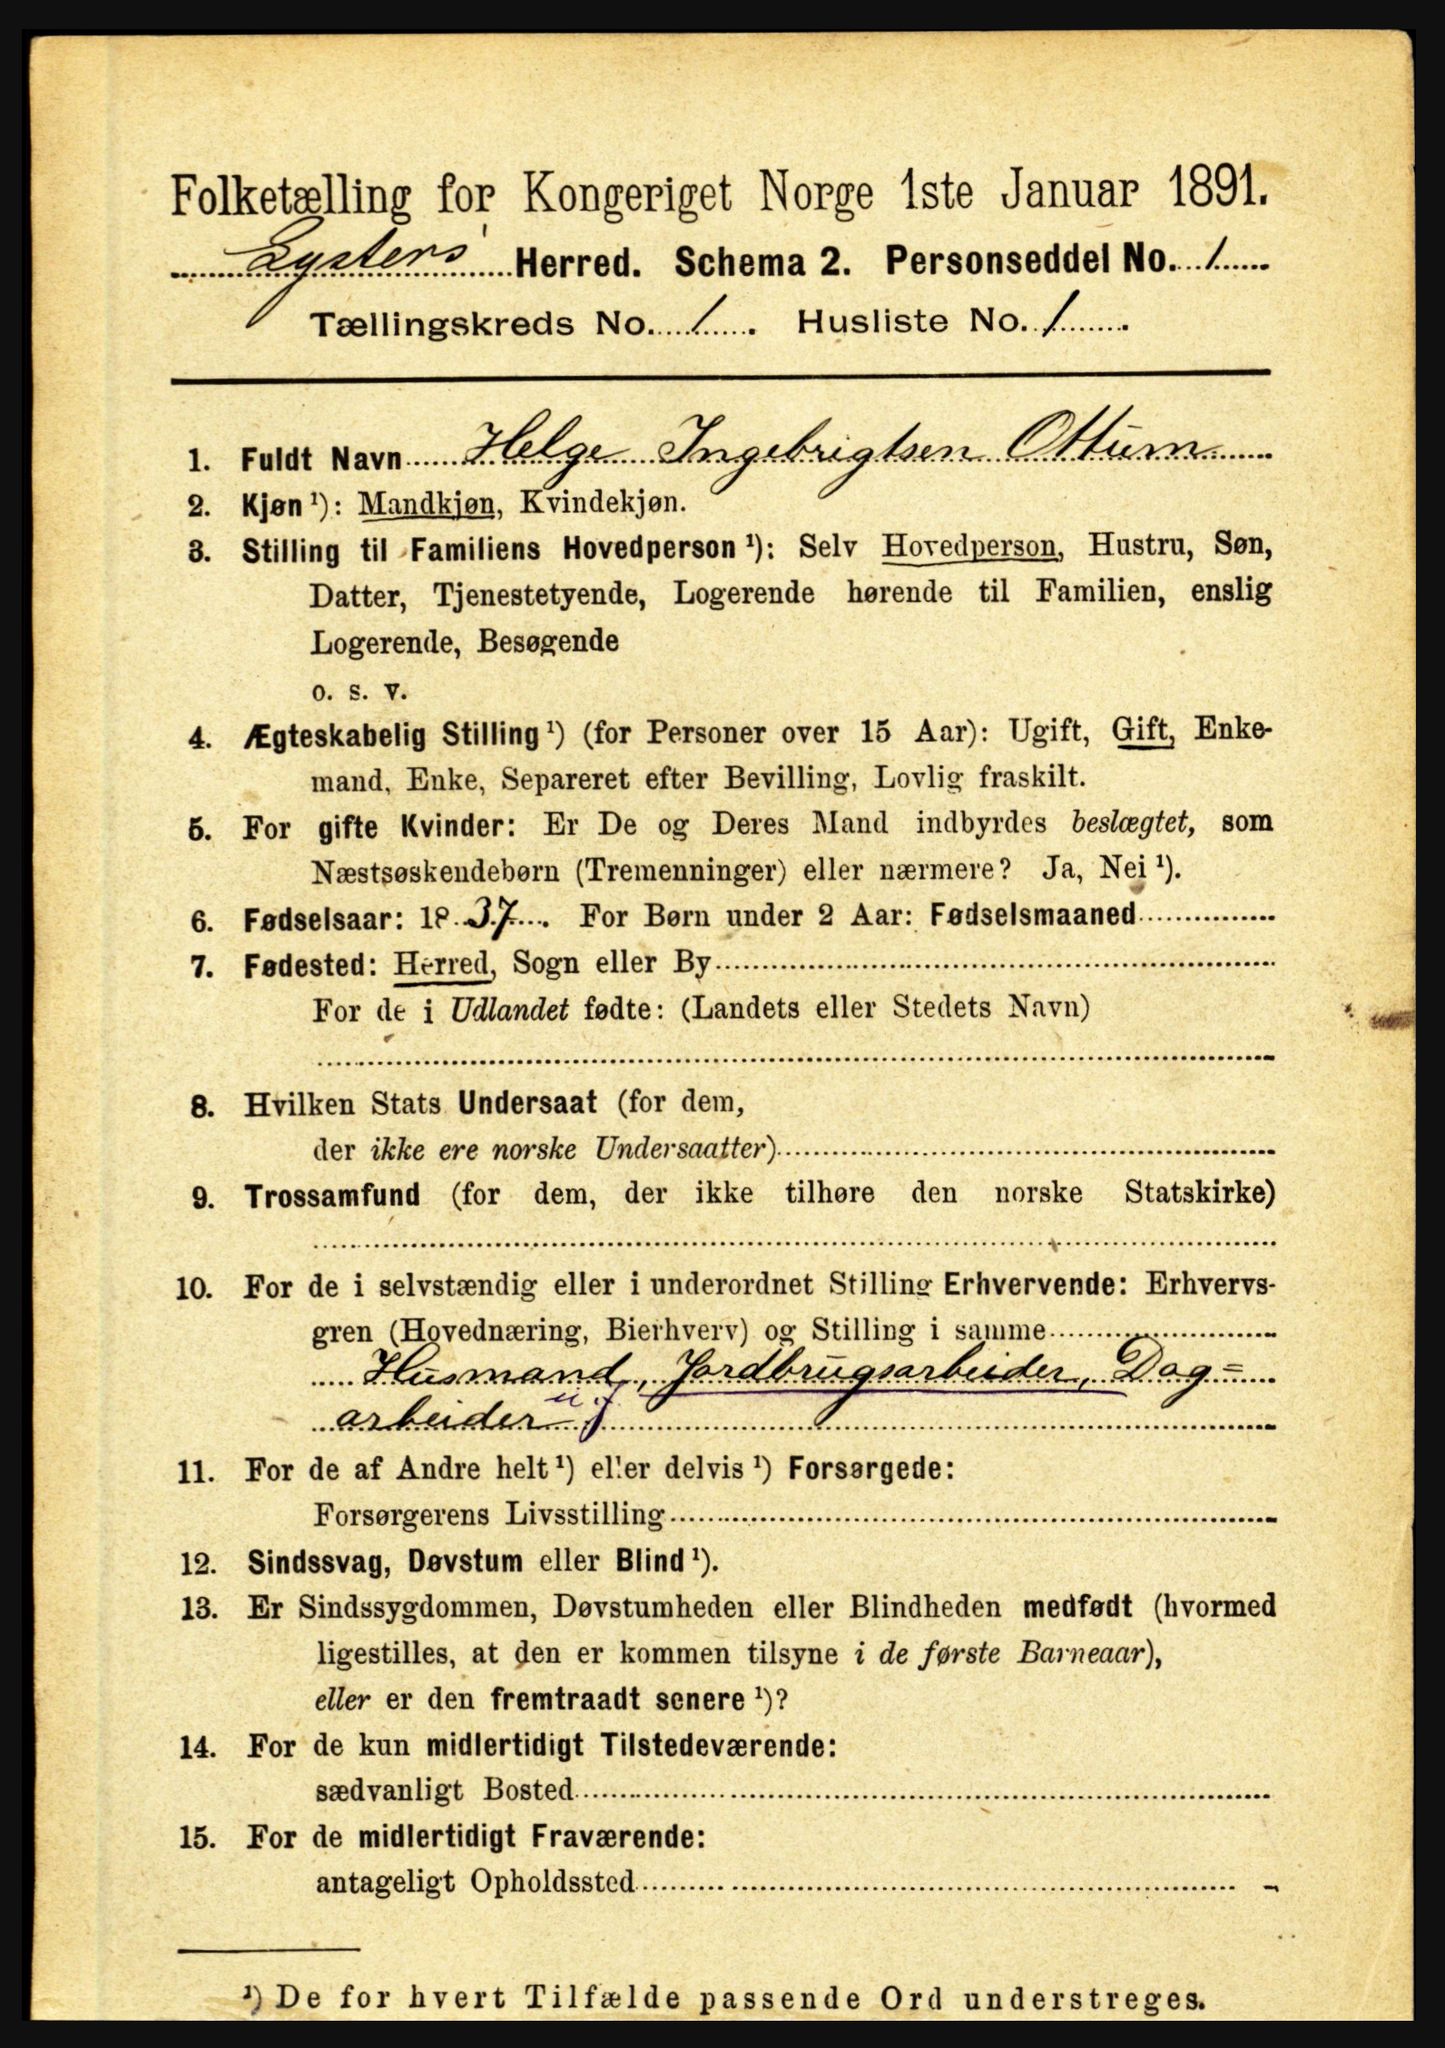 Folketælling for Kongeriget Norge 1ste Januar 1891.
Lysters Herred. Schema 2. Personseddel No. 1
Tællingskreds No. 1. Husliste No. 1.
1. Fuldt Navn Helge Ingebrigtsen Ottum
2. Kjøn ¹): Mandkjøn, Kvindekjøn.
3. Stilling til Familiens Hovedperson ¹): Selv Hovedperson, Hustru, Søn,
Datter, Tjenestetyende, Logerende hørende til Familien, enslig
Logerende, Besøgende
o. s. v.
4. Ægteskabelig Stilling ¹) (for Personer over 15 Aar): Ugift, Gift, Enke-
mand, Enke, Separeret efter Bevilling, Lovlig fraskilt.
5. For gifte Kvinder: Er De og Deres Mand indbyrdes beslægtet, som
Næstsøskendebørn (Tremenninger) eller nærmere? Ja, Nei ¹).
6. Fødselsaar: 1837. For Børn under 2 Aar: Fødselsmaaned
7. Fødested: Herred, Sogn eller By
For de i Udlandet fødte: (Landets eller Stedets Navn)
8. Hvilken Stats Undersaat (for dem,
der ikke ere norske Undersaatter)
9. Trossamfund (for dem, der ikke tilhøre den norske Statskirke)
10. For de i selvstændig eller i underordnet Stilling Erhvervende: Erhvervs-
gren (Hovednæring, Bierhverv) og Stilling i samme
Husmand, Jordbrugsarbeider, Dag=
arbeider
11. For de af Andre helt ¹) eller delvis ¹) Forsørgede:
Forsørgerens Livsstilling
12. Sindssvag, Døvstum eller Blind ¹).
13. Er Sindssygdommen, Døvstumheden eller Blindheden medfødt (hvormed
ligestilles, at den er kommen tilsyne i de første Barneaar),
eller er den fremtraadt senere ¹)?
14. For de kun midlertidigt Tilstedeværende:
sædvanligt Bosted
15. For de midlertidigt Fraværende:
antageligt Opholdssted
¹) De for hvert Tilfælde passende Ord understreges.